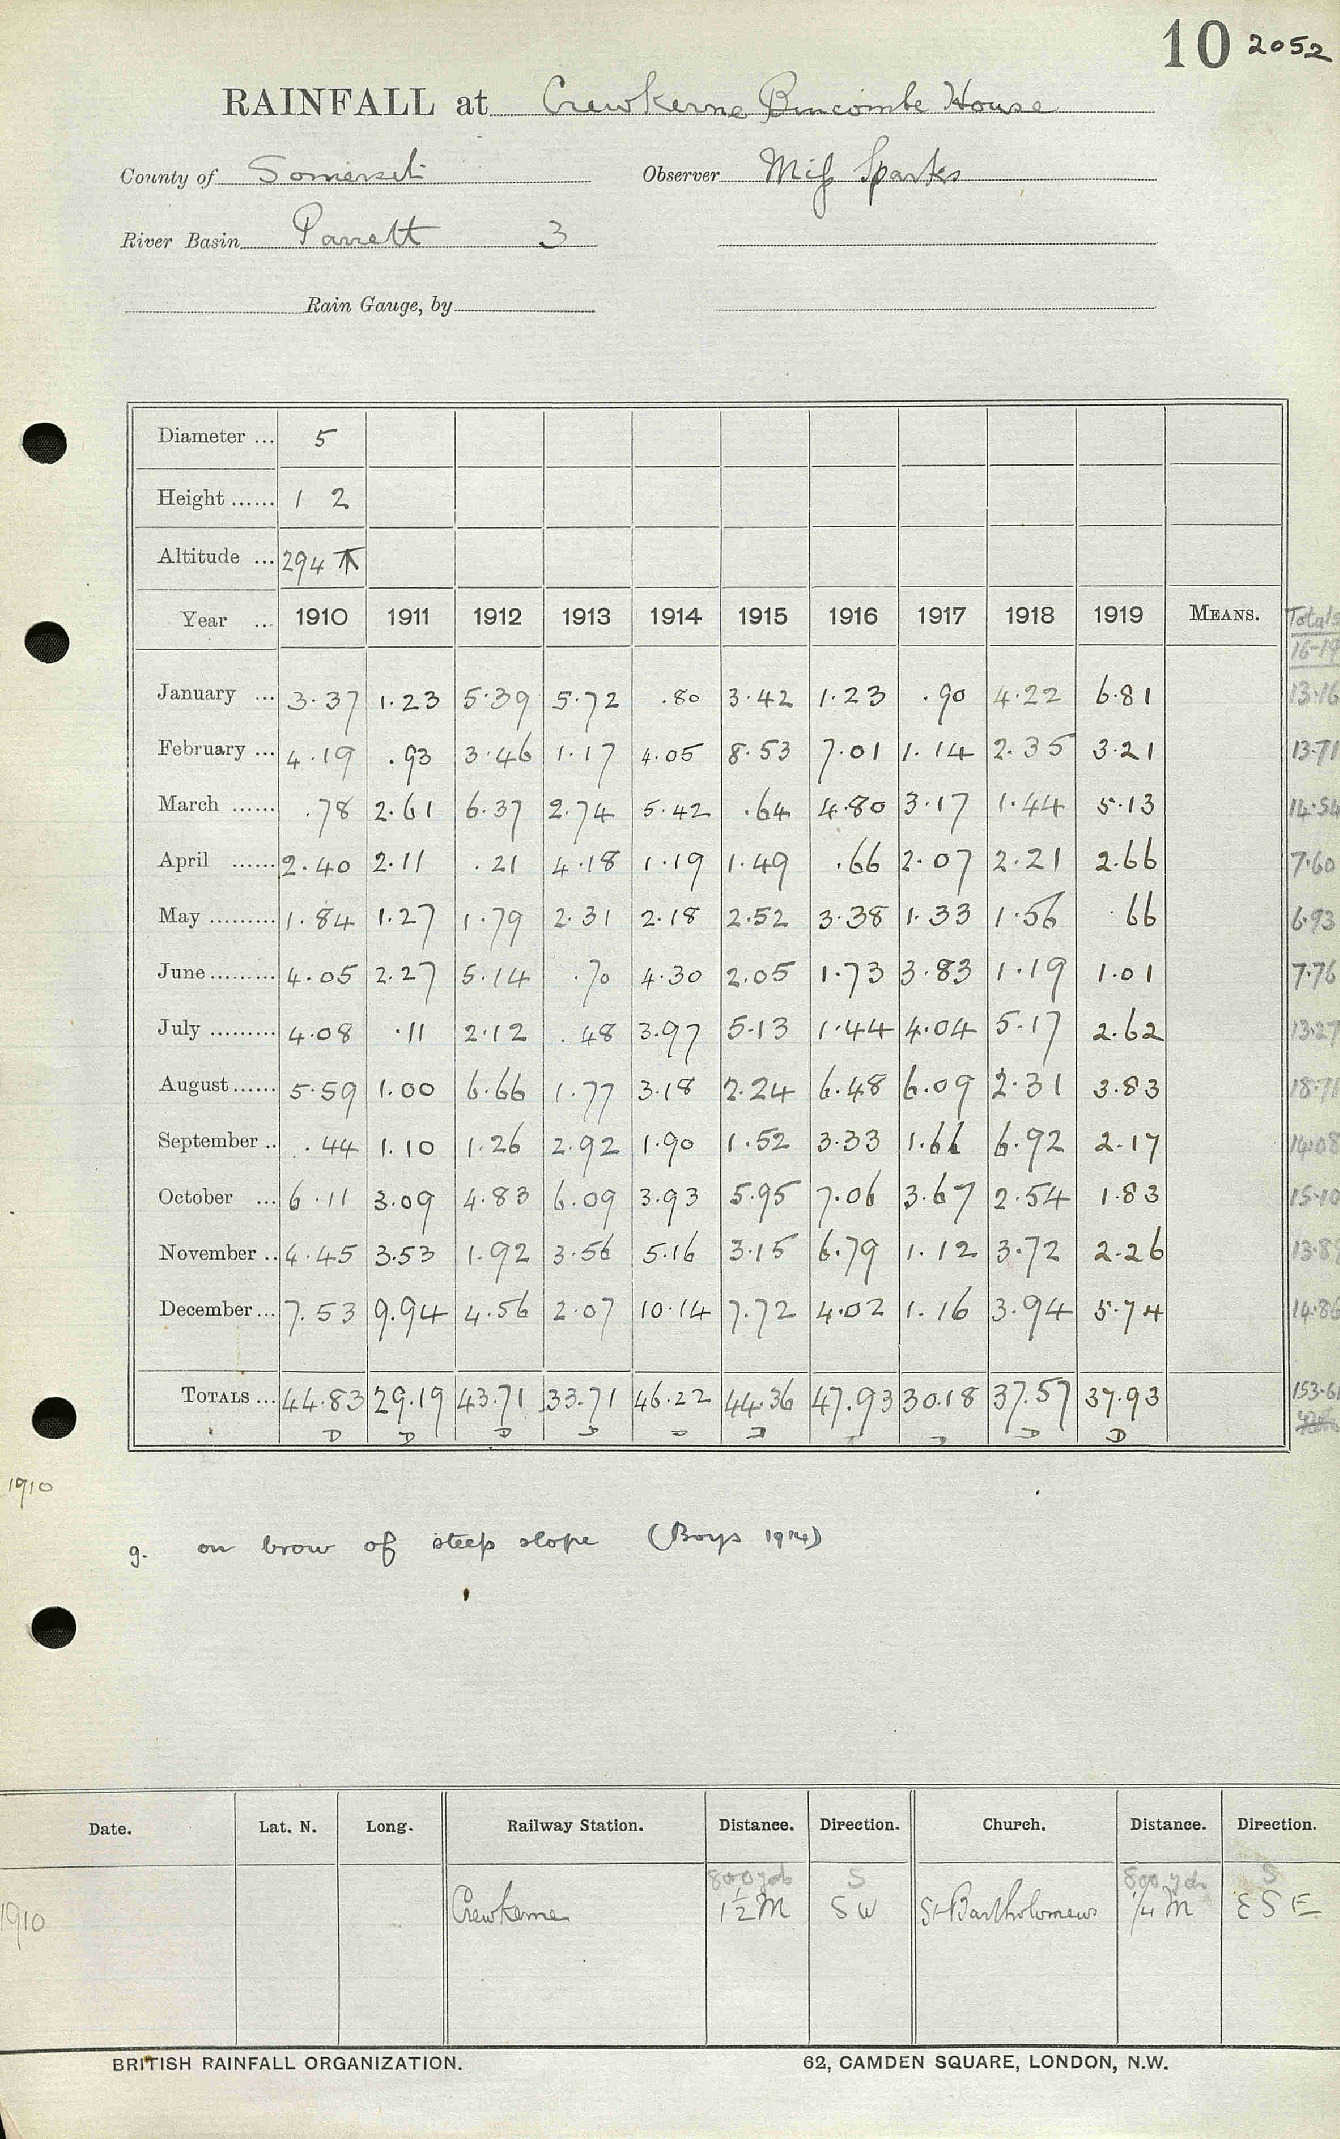 10 2052
RAINFALL at Crewkerne Bincombe House
County of Somerset Observer Miss Sparks
River Basin Parrett 3
Rain Gauge, by
Diameter ... 5
Height ...... 1 2
Altitude ... 294
Year ... 1910 1911 1912 1913 1914 1915 1916 1917 1918 1919 MEANS. Totals
16-19
January ... 3.37 1.23 5.39 5.72 .80 3.42 1.23 .90 4.22 6.81 13.16
February ... 4.19 .93 3.46 1.17 4.05 8.53 7.01 1.14 2.35 3.21 13.71
March ...... .78 2.61 6.37 2.74 5.42 .64 4.80 3.17 1.44 5.13 14.54
April ...... 2.40 2.11 .21 4.18 1.19 1.49 .66 2.07 2.21 2.66 7.60
May ......... 1.84 1.27 1.79 2.31 2.18 2.52 3.38 1.33 1.56 .66 6.93
June ......... 4.05 2.27 5.14 .70 4.30 2.05 1.73 3.83 1.19 1.01 7.76
July ......... 4.08 .11 2.12 .48 3.97 5.13 1.44 4.04 5.17 2.62 13.27
August ...... 5.59 1.00 6.66 1.77 3.18 2.24 6.48 6.09 2.31 3.83 18.71
September .. .44 1.10 1.26 2.92 1.90 1.52 3.33 1.66 6.92 2.17 14.08
October ... 6.11 3.09 4.83 6.09 3.93 5.95 7.06 3.67 2.54 1.83 15.10
November .. 4.45 3.53 1.92 3.56 5.16 3.15 6.79 1.12 3.72 2.26 13.89
December ... 7.53 9.94 4.56 2.07 10.14 7.72 4.02 1.16 3.94 5.74 14.86
TOTALS ... 44.83 29.19 43.71 33.71 46.22 44.36 47.93 30.18 37.57 37.93 153.61
D D D D D D D
1910
g. on brow of steep slope (Boys 1914)
Date. Lat. N. Long. Railway Station. Distance. Direction. Church. Distance. Direction.
800 yds S 800 yds S
1910 Crewkerne 1½ M SW St Bartholomews ¼ M ESE
BRITISH RAINFALL ORGANIZATION. 62, CAMDEN SQUARE, LONDON, N.W.